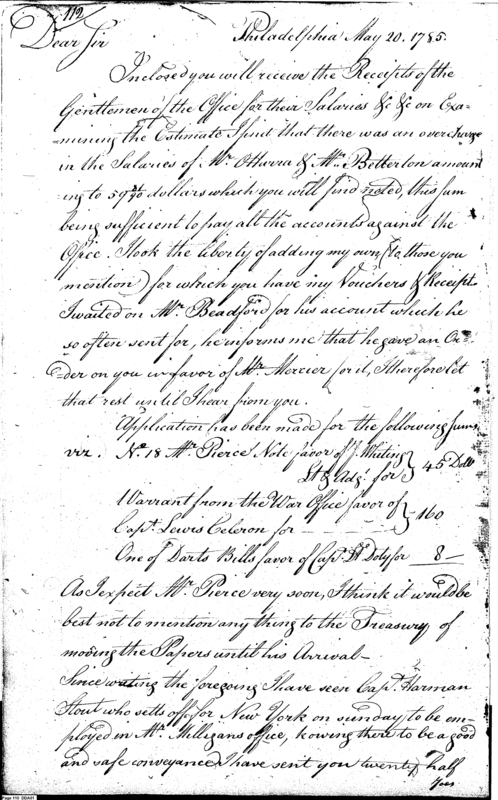 112
Philadelphia May 20. 1785.
Dear Sir
Inclosed you will receive the Receipts of the
Gentlemen of the Office for their Salaries &c &c on Exa-
=mining the Estimate I find that there was an overcharge
in the Salaries of Mr. Otharra & Mr. Betterton amount
=ing to 59 dollars which you will find noted, this sum
being sufficient to pay all the accounts against the
Office. I took the liberty of adding my own (to those you
mention) for which you have my Vouchers & Receipt
I waited on Mr. Beadford for his account which he
so often sent for, he informs me that he gave an Or-
=der on you in favor of Mr. Mercier for it, I therefore let
that rest until I hear from you.
Application has been made for the following sums
viz. No. 18 Mr. Pierce's Note favor of J. Whiting
Lt. & Adjt. for } 45 Dolls
Warrant from the War Office favor of
Capt. Lewis Celeron for } 160
One of Darts Bills favor of Capt. Doty for 8 —
As I expect Mr. Pierce very soon, I think it would be
best not to mention any thing to the Treasury of
moving the Papers until his Arrival—
Since writing the foregoing I have seen Capt. Harman
Stout who setts off for New York on sunday to be em-
ployed in Mr. Milligans office, kowing there to be a good
and safe conveyance I have sent you twenty half
Joes
Page 110 DDA01